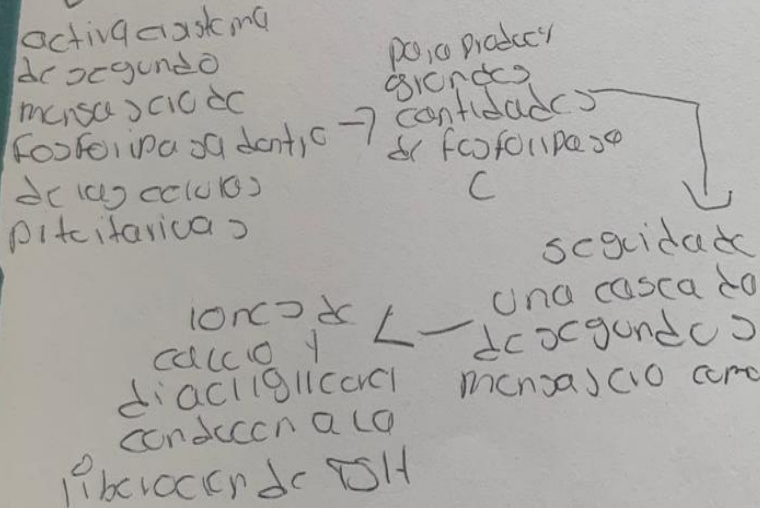 activa el sistema
de segundo
mensajero de
fosfolipasa dentro
de las celulas
pituitarias
para producir
grandes
cantidades
de fosfolipasa
C
seguida de
una cascada
de segundos
mensajero como
iones de
calcio y
diacilglicerol
conducen a la
liberacion de TSH